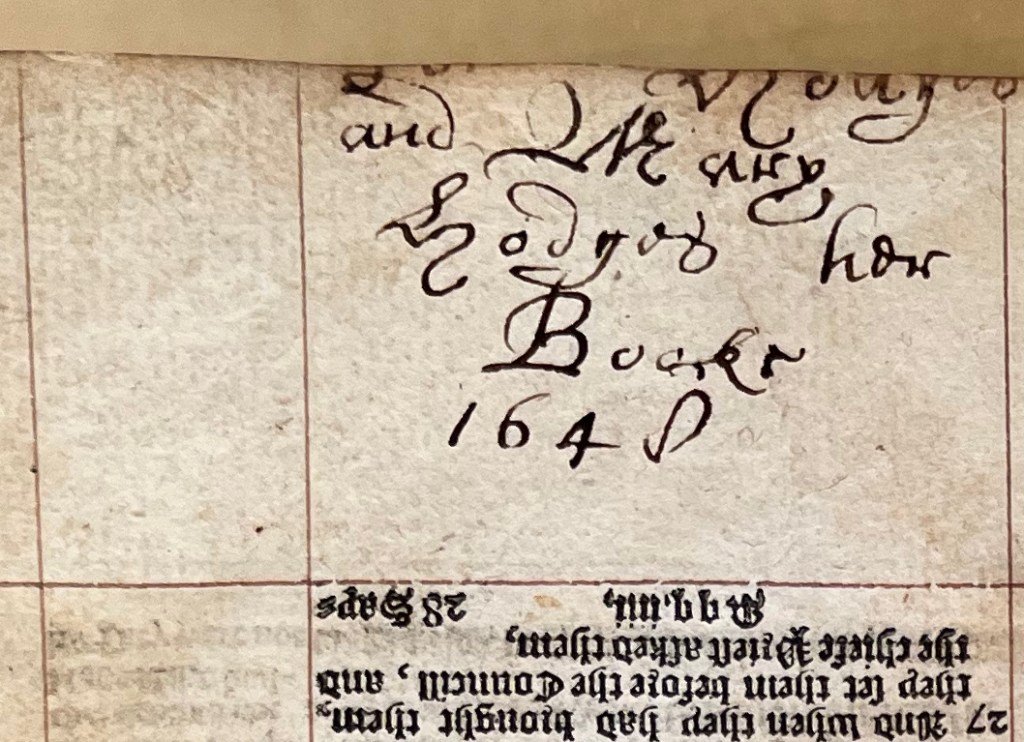 Hodges
and Mary
Hodges her
Booke
1648
27 And when they had brought them,
they set them before the Councill, and
the chiefe Priest asked them,
28 Say-